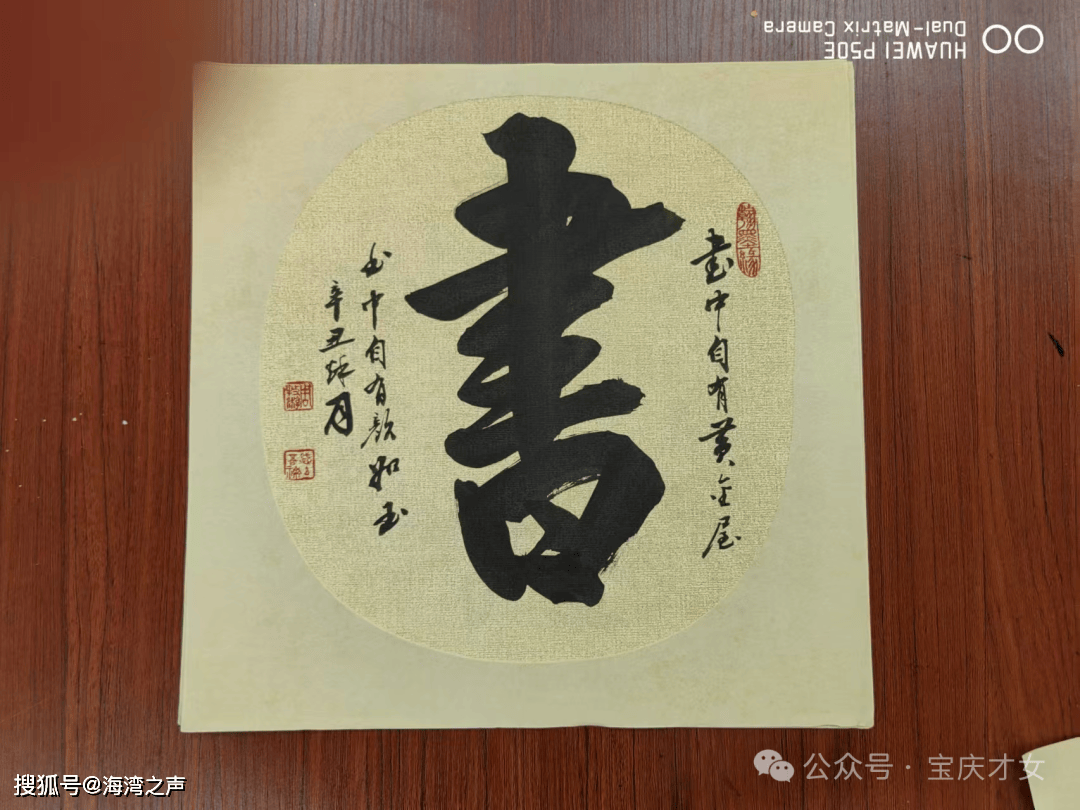 HUAWEI P50E
Dual-Matrix Camera
書
書中自有黄金屋
书中自有颜如玉
辛丑秋月
搜狐号@海湾之声
公众号·宝庆才女